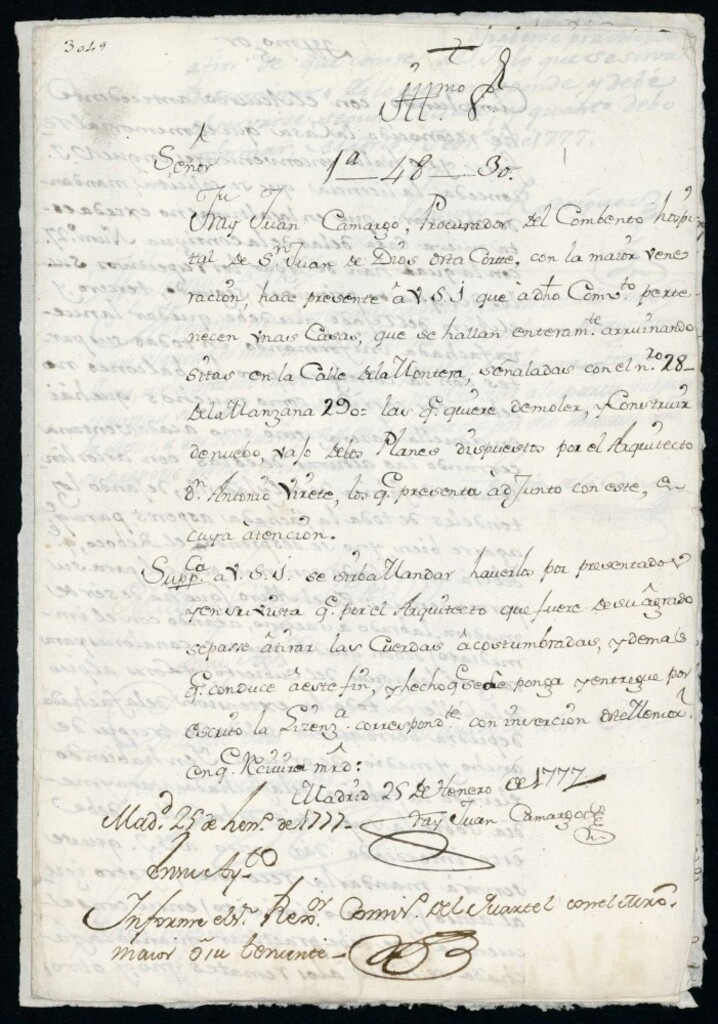 3049
Yllmo Sr
Señor
1ª—48—30.
Fray Juan Camargo, Procurador del Combento hospi
tal de Sn Juan de Dios desta Corte, con la maior vene
ración, hace presente â V.S.I. que â dho Comvto perte
necen unas Casas, que se hallan enteramte arruinando
sitas en la Calle dela Montera, señaladas con el nro 28
dela Manzana 290: las q. quiere demoler, y Construir
denuebo, vajo delos Planes dispuestos por el Arquitecto
Dn Antonio Virete, los q. presenta âdjunto con este, en
cuya âtencion.
Suppca a V.S.I. se sirba Mandar haverlos por presentados
y en su vista q. por el Arquitecto que fuere de su âgrado
sepasse âtirar las Cuerdas âcostumbradas, y demas
q. conduce âeste fin, y hecho q. sea se ponga y entregue por
escrito la Lizenza correspondte con inserción deste Memorl
en q. Recivira mrd:
Madrid 25 de Henero de 1777
Fray Juan Camargo
Madd 25 de henº de 1777
en su Ayto
Informe el Sr. Rexor Comisº. del Quartel con el Mro.
maior ô su theniente